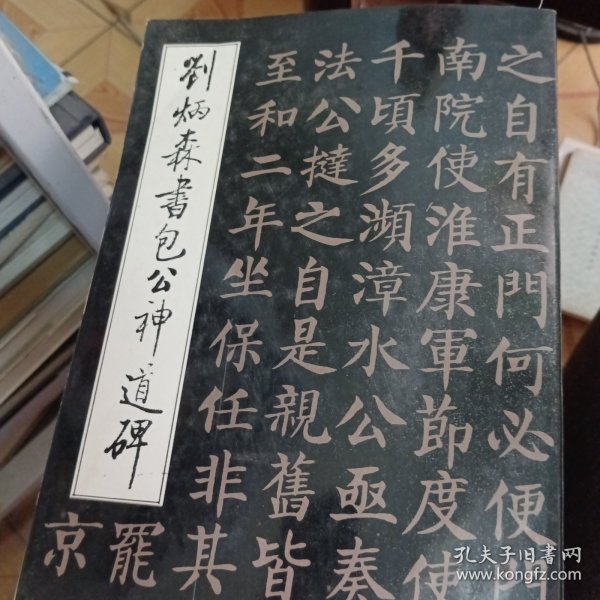 劉炳森書包公神道碑
之自有正門何必便門
南院使淮康軍節度使
千頃多瀕漳水公亟奏
法公撻之自是親舊皆
至和二年坐保任非其
罷
京
孔夫子旧书网
www.kongfz.com